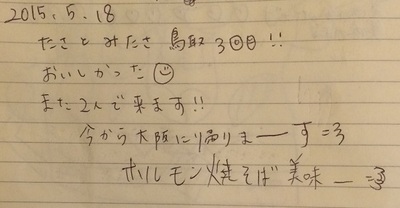 2015.5.18
たさとみたさ 鳥取3回目!!
おいしかった☺
また2人で来ます!!
今から大阪に帰りまーす=3
ホルモン焼そば美味ー=3